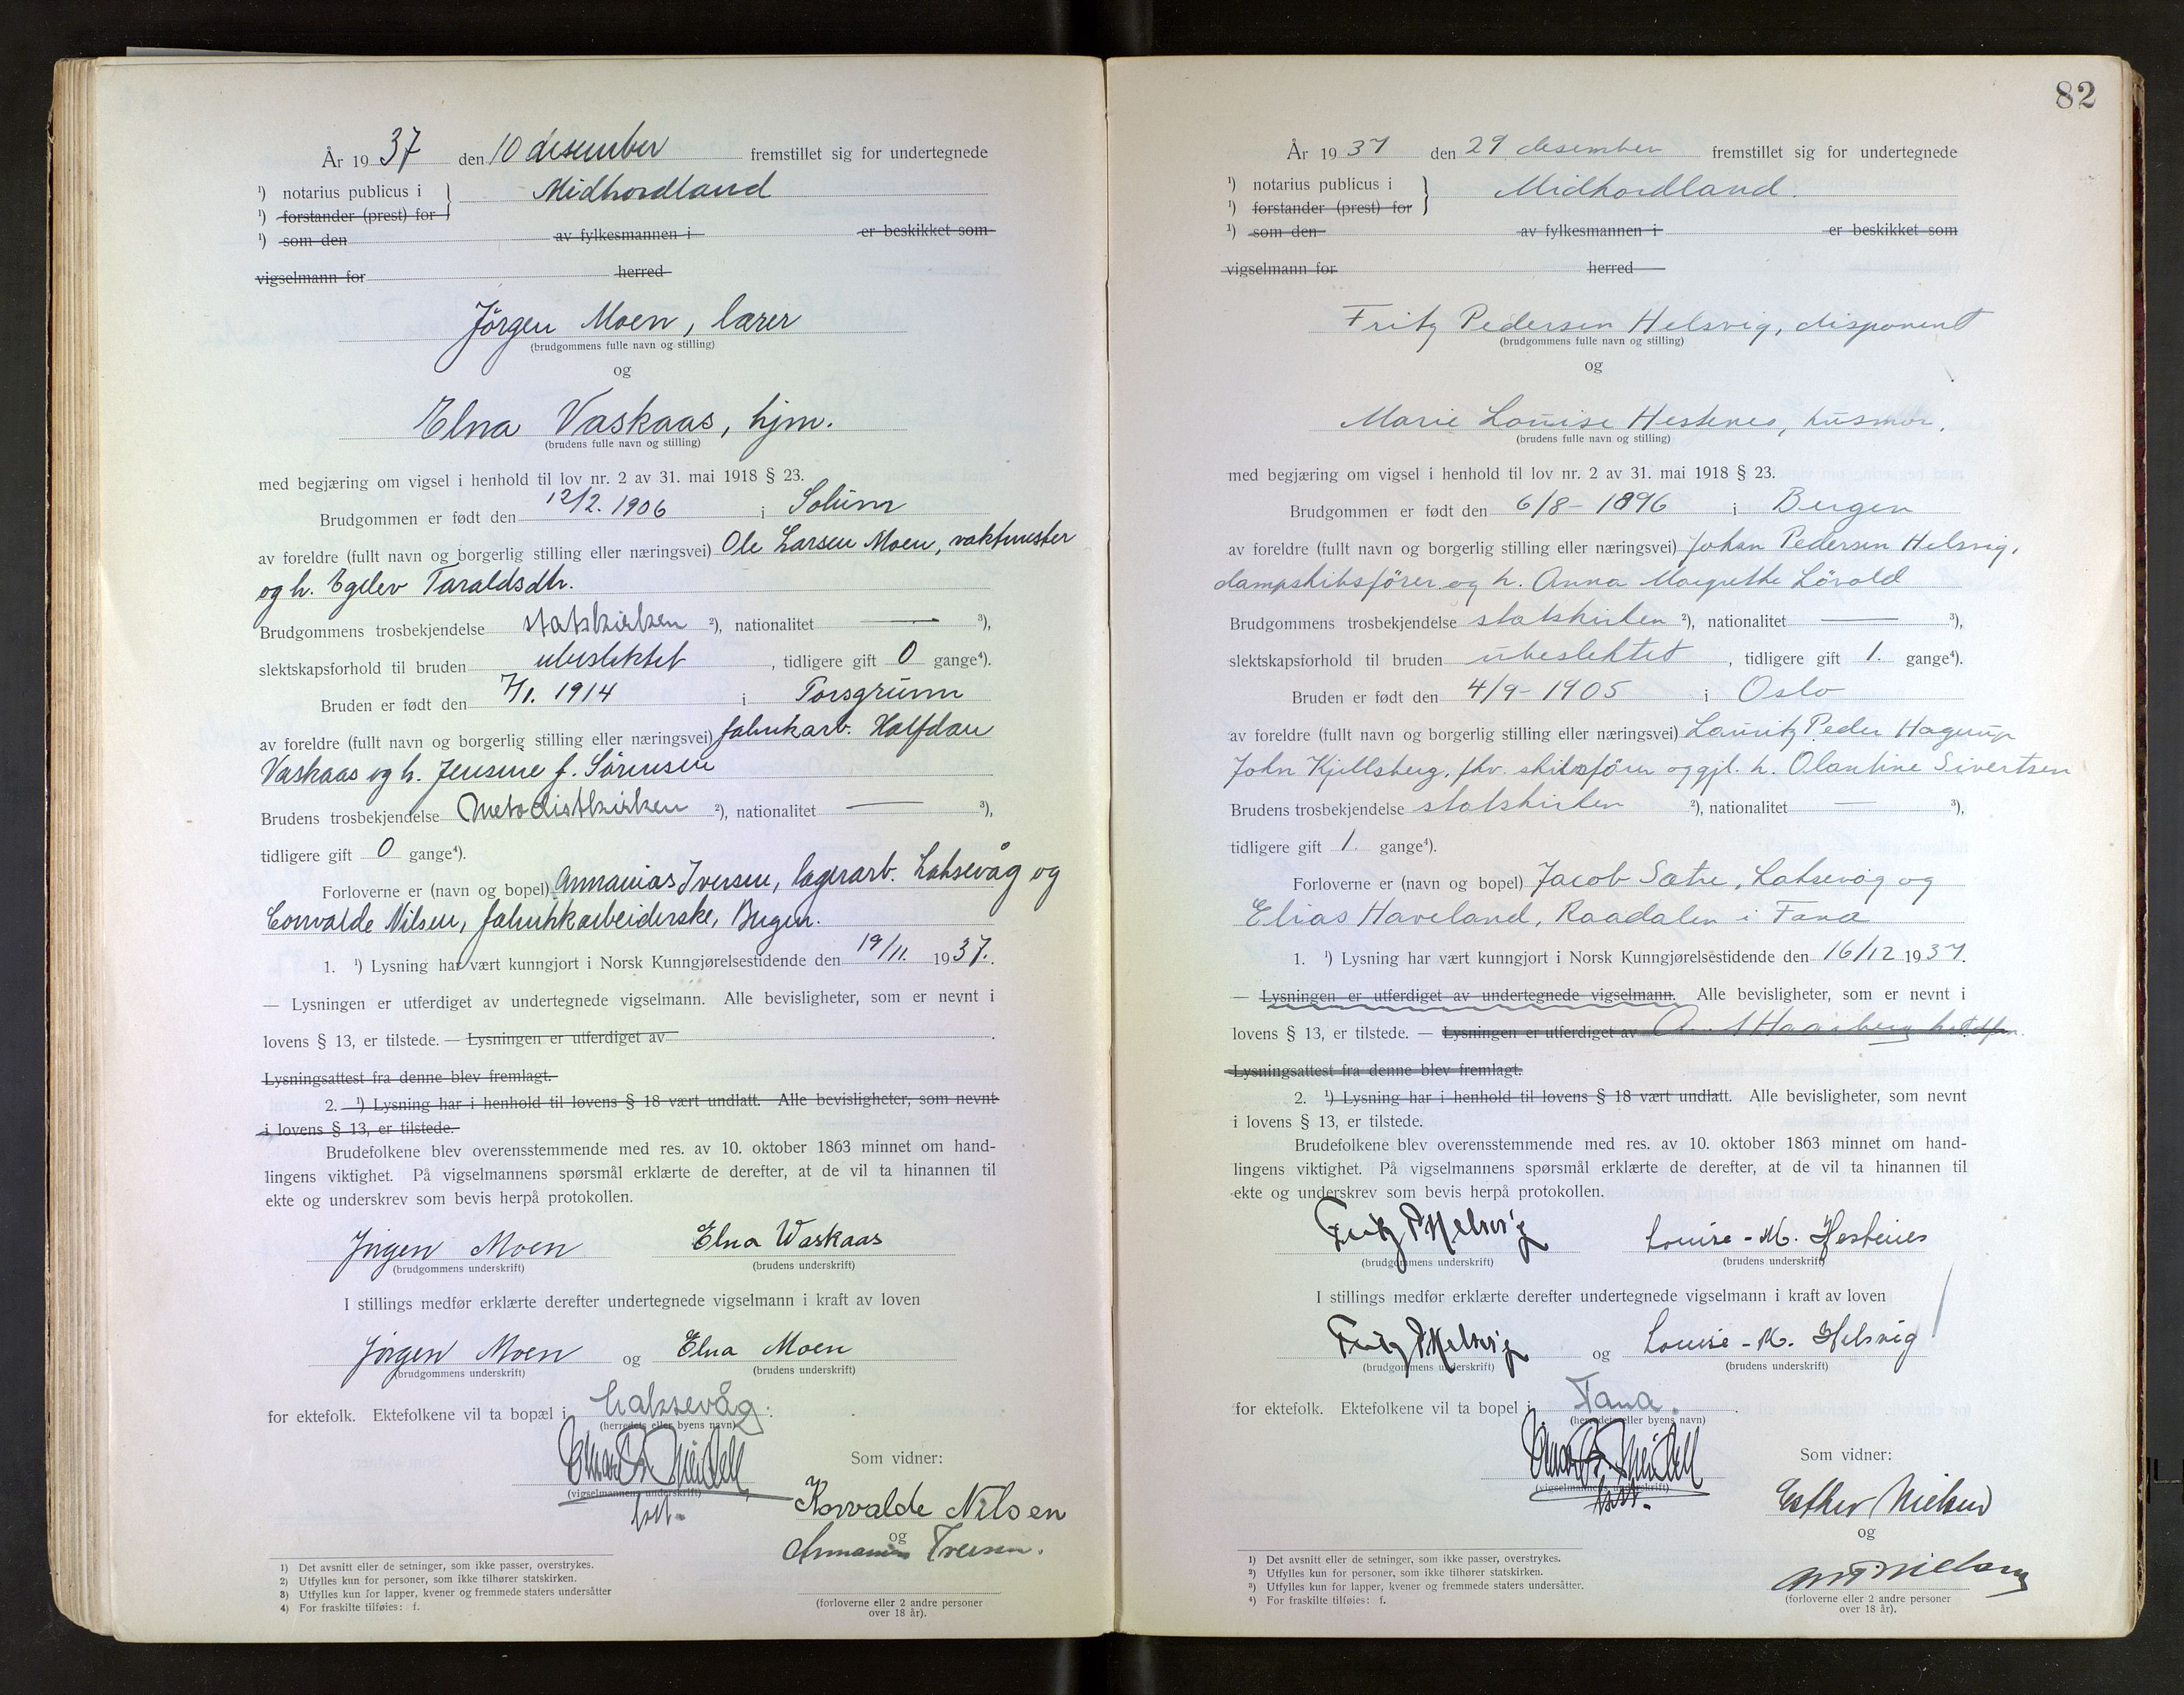 År 1937 den 10 desember fremstillet sig for undertegnede
¹) notarius publicus i } Midhordland
¹) forstander (prest) for
¹) som den av fylkesmannen i er beskikket som
vigselmann for herred
Jörgen Moen, lærer
(brudgommens fulle navn og stilling)
og
Elna Vaskaas, hjm.
(brudens fulle navn og stilling)
med begjæring om vigsel i henhold til lov nr. 2 av 31. mai 1918 § 23.
Brudgommen er født den 12/2. 1906 i Solum
av foreldre (fullt navn og borgerlig stilling eller næringsvei) Ole Larsen Moen, vaktmester
og h. Egelev Taraldsdtr.
Brudgommens trosbekjendelse statskirken ²), nationalitet — ³),
slektskapsforhold til bruden ubeslektet, tidligere gift 0 gange⁴).
Bruden er født den 7/1. 1914 i Porsgrunn
av foreldre (fullt navn og borgerlig stilling eller næringsvei) fabrikarb. Halfdan
Vaskaas og h. Jensine f. Sörensen
Brudens trosbekjendelse Metodistkirken ²), nationalitet — ³),
tidligere gift 0 gange⁴).
Forloverne er (navn og bopel) Annanias Iversen, lagerarb. Laksevåg og
Corvalde Nilsen, fabrikkarbeiderske, Bergen.
1. ¹) Lysning har vært kunngjort i Norsk Kunngjørelsestidende den 19/11. 1937.
— Lysningen er utferdiget av undertegnede vigselmann. Alle bevisligheter, som er nevnt i
lovens § 13, er tilstede. — Lysningen er utferdiget av
Lysningsattest fra denne blev fremlagt.
2. ¹) Lysning har i henhold til lovens § 18 vært undlatt. Alle bevisligheter, som nevnt
i lovens § 13, er tilstede.
Brudefolkene blev overensstemmende med res. av 10. oktober 1863 minnet om hand-
lingens viktighet. På vigselmannens spørsmål erklærte de derefter, at de vil ta hinannen til
ekte og underskrev som bevis herpå protokollen.
Jørgen Moen Elna Waskaas
(brudgommens underskrift) (brudens underskrift)
I stillings medfør erklærte derefter undertegnede vigselmann i kraft av loven
Jørgen Moen og Elna Moen
(brudgommens underskrift) (brudens underskrift)
for ektefolk. Ektefolkene vil ta bopæl i Laksevåg.
(herredets eller byens navn)
Som vidner:
(vigselmannens underskrift)
Korvalde Nilsen
og
Annanias Iversen.
(forloverne eller 2 andre personer
over 18 år).
1) Det avsnitt eller de setninger, som ikke passer, overstrykes.
2) Utfylles kun for personer, som ikke tilhører statskirken.
3) Utfylles kun for lapper, kvener og fremmede staters undersåtter
4) For fraskilte tilføies: f.
82
År 1937 den 29 desember fremstillet sig for undertegnede
¹) notarius publicus i } Midhordland.
¹) forstander (prest) for
¹) som den av fylkesmannen i er beskikket som
vigselmann for herred
Fritz Pedersen Helsvig, disponent
(brudgommens fulle navn og stilling)
og
Marie Louise Hestenes, husmor.
(brudens fulle navn og stilling)
med begjæring om vigsel i henhold til lov nr. 2 av 31. mai 1918 § 23.
Brudgommen er født den 6/8 - 1896 i Bergen
av foreldre (fullt navn og borgerlig stilling eller næringsvei) Johan Pedersen Helsvig,
dampskibsfører og h. Anna Margrethe Lövold
Brudgommens trosbekjendelse statskirken ²), nationalitet — ³),
slektskapsforhold til bruden ubeslektet, tidligere gift 1. gange⁴).
Bruden er født den 4/9 - 1905 i Oslo
av foreldre (fullt navn og borgerlig stilling eller næringsvei) Lauritz Peder Hagerup
John Kjellsberg, fhv. skibsfører og gjl. h. Olantine Sivertsen
Brudens trosbekjendelse statskirken ²), nationalitet — ³),
tidligere gift 1. gange⁴).
Forloverne er (navn og bopel) Jacob Sætre, Laksevåg og
Elias Haveland, Raadalen i Fana
1. ¹) Lysning har vært kunngjort i Norsk Kunngjørelsestidende den 16/12 1937.
— Lysningen er utferdiget av undertegnede vigselmann. Alle bevisligheter, som er nevnt i
lovens § 13, er tilstede. — Lysningen er utferdiget av
Lysningsattest fra denne blev fremlagt.
2. ¹) Lysning har i henhold til lovens § 18 vært undlatt. Alle bevisligheter, som nevnt
i lovens § 13, er tilstede.
Brudefolkene blev overensstemmende med res. av 10. oktober 1863 minnet om hand-
lingens viktighet. På vigselmannens spørsmål erklærte de derefter, at de vil ta hinannen til
ekte og underskrev som bevis herpå protokollen.
Fritz P Helsvig Louise - M. Hestenes
(brudgommens underskrift) (brudens underskrift)
I stillings medfør erklærte derefter undertegnede vigselmann i kraft av loven
Fritz P Helsvig og Louise - M. Helsvig
(brudgommens underskrift) (brudens underskrift)
for ektefolk. Ektefolkene vil ta bopel i Fana.
(herredets eller byens navn)
Som vidner:
(vigselmannens underskrift)
Esther Nielsen
og
Nielsen
(forloverne eller 2 andre personer
over 18 år).
¹) Det avsnitt eller de setninger, som ikke passer, overstrykes.
²) Utfylles kun for personer, som ikke tilhører statskirken.
³) Utfylles kun for lapper, kvener og fremmede staters undersåtter.
⁴) For fraskilte tilføies: f.